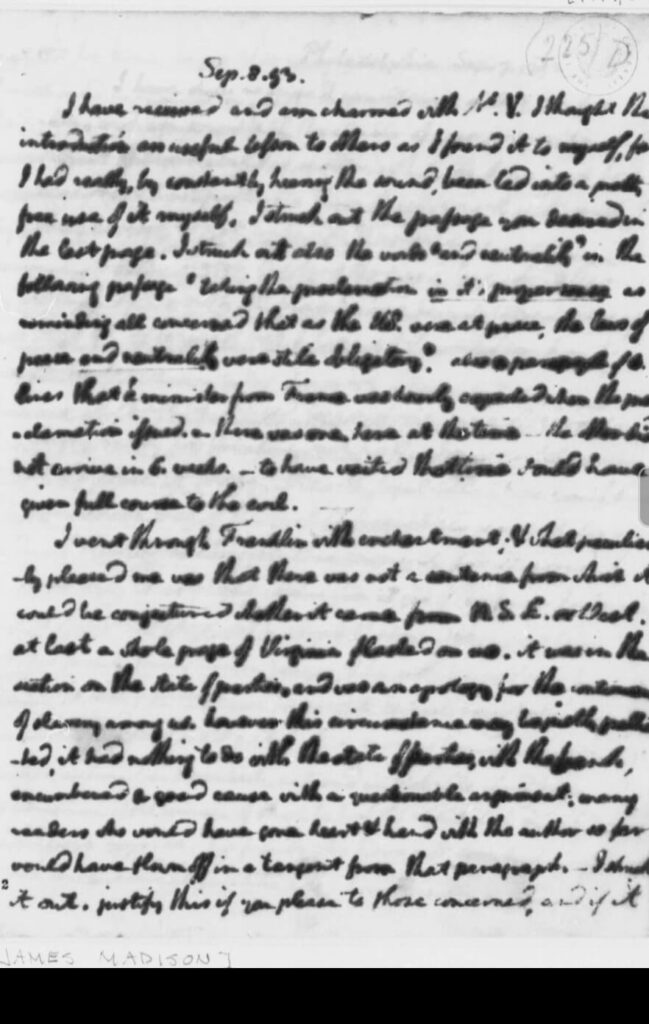 225 D
Sep. 8. 93.
I have received and am charmed with No. V. I thought the
introduction an useful lesson to others as I found it to myself, for
I had really, by constantly hearing the sound, been led into a pretty
free use of it myself. I struck out the passage you desired in
the last page. I struck out also the words "and neutrality" in the
following passage "taking the proclamation in it's proper sense as
reminding all concerned that as the US. were at peace, the laws of
peace and neutrality were still obligatory". also a paragraph of 4.
lines that a minister from France was hourly expected when the pro
-clamation issued. there was one here at the time the other did
not arrive in 6. weeks. - to have waited that time would have
given full course to the evil.
I went through Franklin with enchantment; & what peculiar
-ly pleased me was that there was not a sentence from which it
could be conjectured whether it came from N. S. E. or West.
at last a whole page of Virginia flashed on me. it was in the
section on the state of parties, and was an apology for the continuance
of slavery among us. however this circumstance may be justly pallia
-ted, it had nothing to do with the state of parties, with the bank,
encumbered a good cause with a questionable argument; many
readers who would have gone heart & hand with the author so far
would have flown off in a tangent from that paragraph. - I struck
it out. justify this if you please to those concerned, and if it
JAMES MADISON]